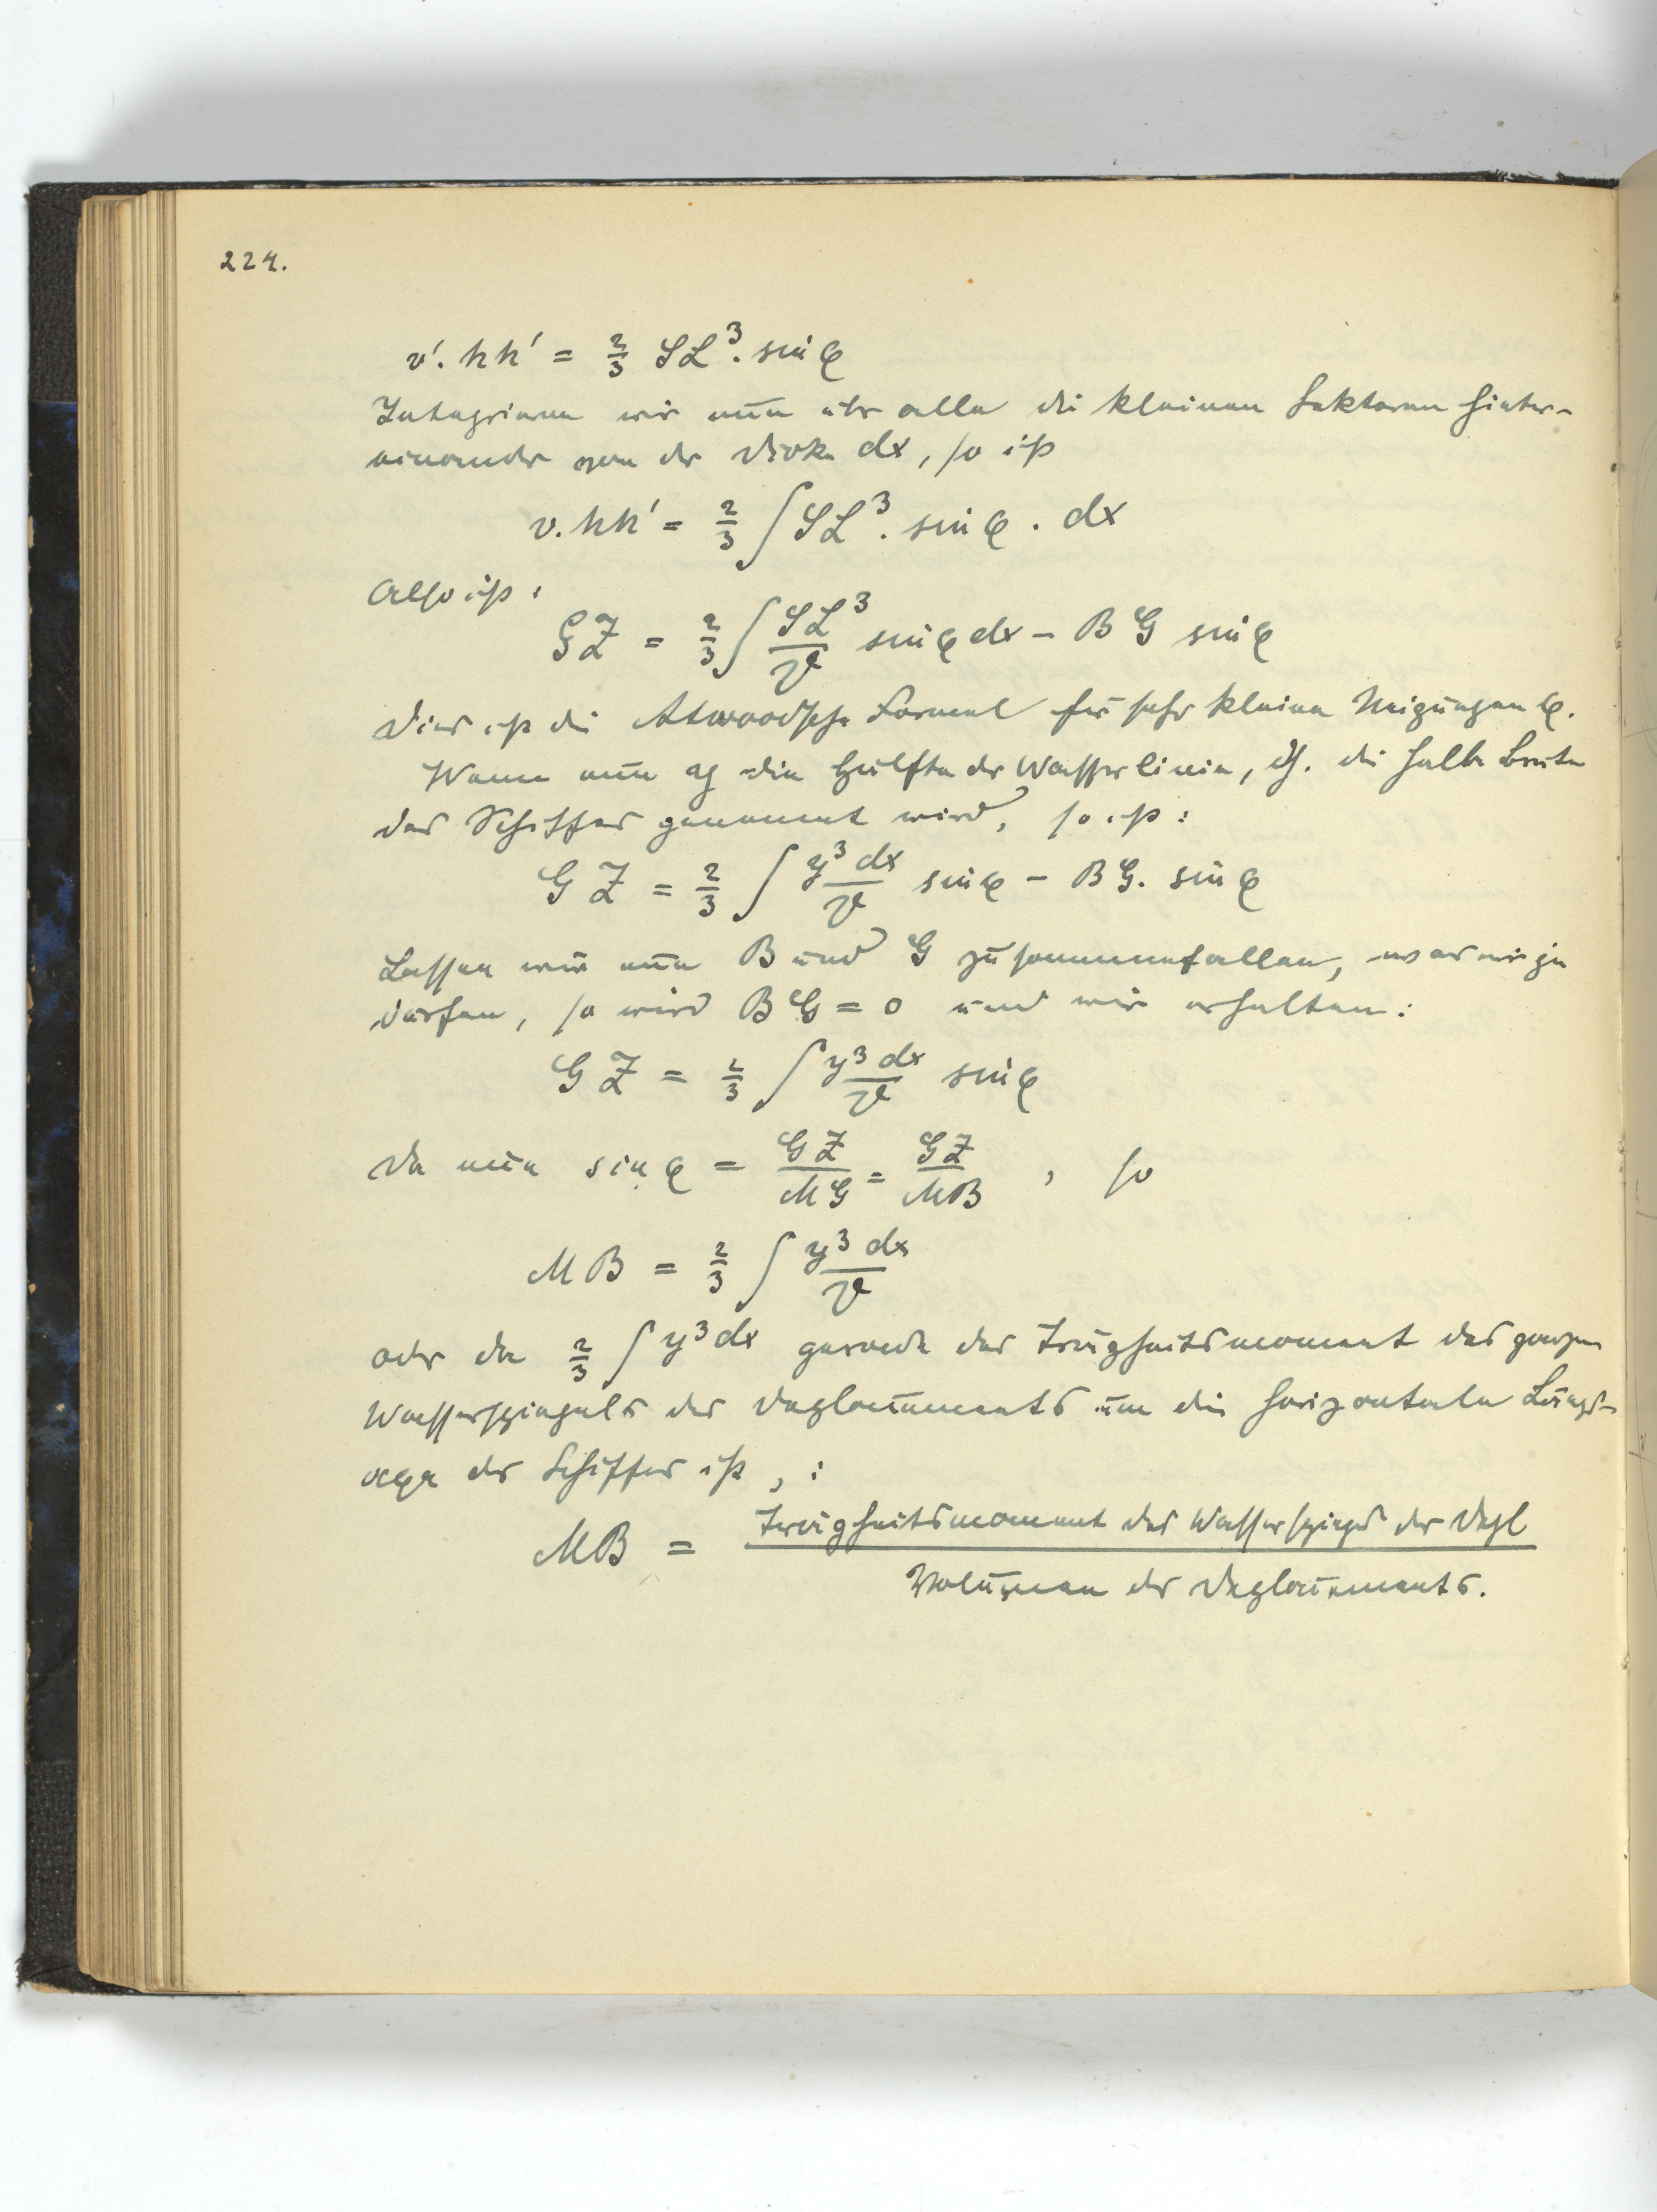 224.
v'. hh' = 2/3 SL³. sin φ
Integrieren wir nun über alle die kleinen Sektoren hinter-
einander von der Dicke dx, so ist
v. hh' = 2/3 ∫ SL³. sin φ . dx
Also ist:
GZ = 2/3 ∫ SL³/V sin φ dx – BG sin φ
Dies ist die Atwoodsche Formel für sehr kleine Neigungen φ.
Wenn nun y die Hälfte der Wasserlinie, d.h. die halbe Breite
des Schiffes genannt wird, so ist:
GZ = 2/3 ∫ y³ dx/V sin φ – BG. sin φ
Lassen wir nun B und G zusammenfallen, was wir ja
dürfen, so wird BG = 0 und wir erhalten:
GZ = 2/3 ∫ y³ dx/V sin φ
Da nun sin φ = GZ/MG = GZ/MB , so
MB = 2/3 ∫ y³ dx/V
oder da 2/3 ∫ y³ dx gerade das Trägheitsmoment des ganzen
Wasserspiegels des Deplacements um die horizontale Längs-
axe des Schiffes ist, :
MB = Trägheitsmoment des Wasserspiegels des Depl
Volumen des Deplacements.